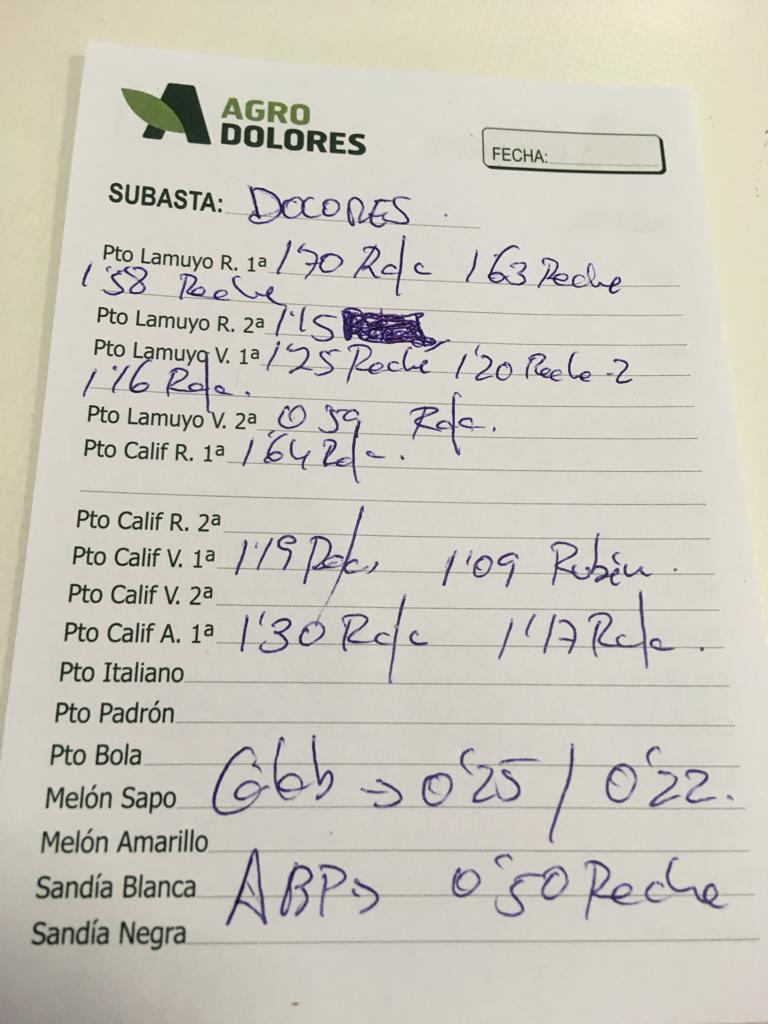 AGRO
DOLORES
FECHA:
SUBASTA: DOLORES.
Pto Lamuyo R. 1ª 1'70 Roja 1'63 Reche
1'58 Reche
Pto Lamuyo R. 2ª 1'15
Pto Lamuyo V. 1ª 1'25 Reche 1'20 Reche-2
1'16 Roja.
Pto Lamuyo V. 2ª 0'59 Roja.
Pto Calif R. 1ª 1'64 Roja.
Pto Calif R. 2ª
Pto Calif V. 1ª 1'19 Roja, 1'09 Rubén.
Pto Calif V. 2ª
Pto Calif A. 1ª 1'30 Roja 1'17 Roja.
Pto Italiano
Pto Padrón
Pto Bola
Melón Sapo → 0'25 / 0'22.
Melón Amarillo
Sandía Blanca ABP→ 0'50 Reche
Sandía Negra